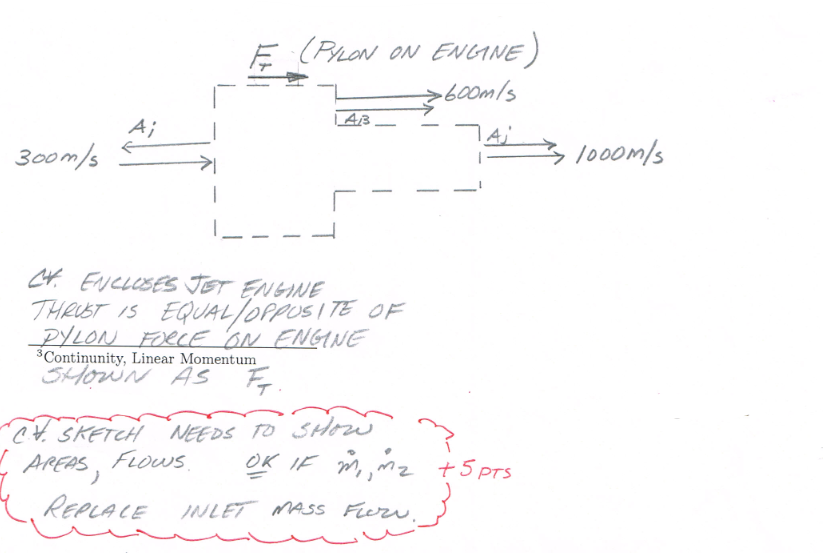 F_T (PYLON ON ENGINE)
600m/s
A_B
A_i
A_j
300m/s
1000m/s
C.V. ENCLOSES JET ENGINE
THRUST IS EQUAL/OPPOSITE OF
PYLON FORCE ON ENGINE
³Continunity, Linear Momentum
SHOWN AS F_T.
C.V. SKETCH NEEDS TO SHOW
AREAS, FLOWS. OK IF ṁ₁, ṁ₂ +5 PTS
REPLACE INLET MASS FLOW.